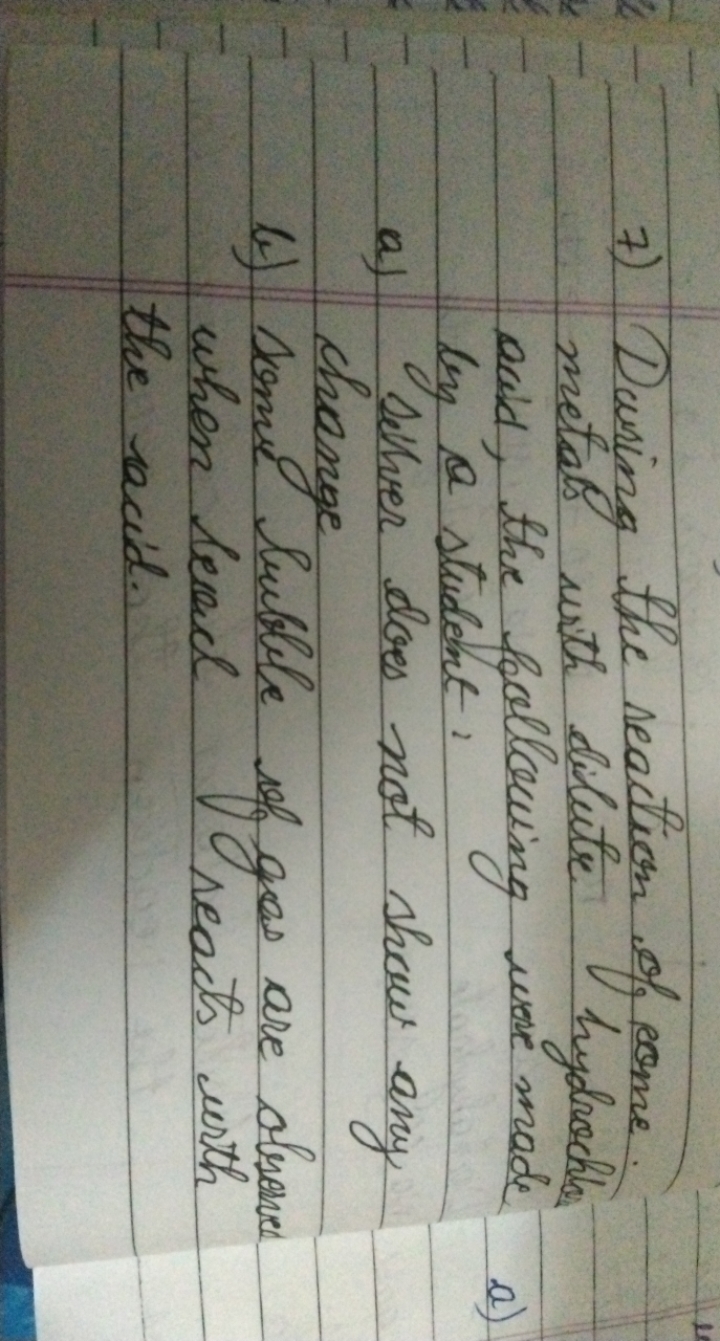 7) During the reaction of some
metals with dilute hydrochlo
acid, the following were made
by a student :
a) silver does not show any
change
b) some bubble of gas are observed
when lead reacts with
the acid.
a)